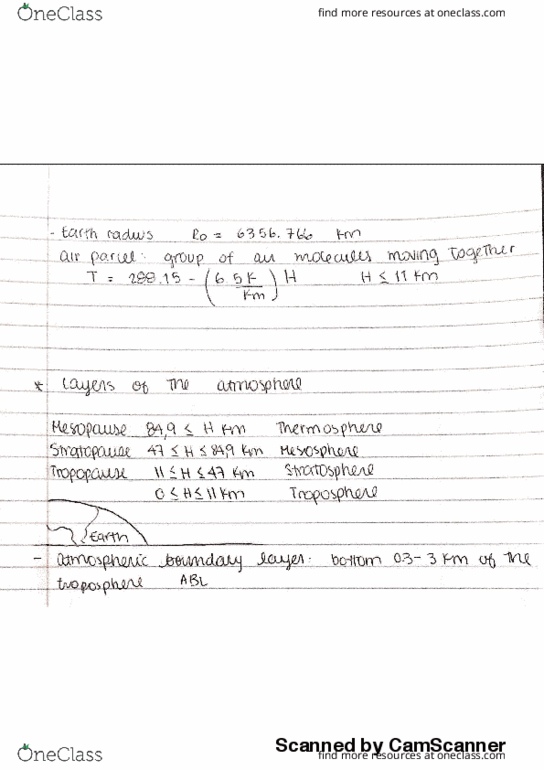 OneClass
find more resources at oneclass.com
- Earth radius Ro = 6356.766 km
air parcel: group of air molecules moving together
T = 288.15 - (6.5K/km) H H ≤ 11 km
* Layers of the atmosphere
Mesopause 84,9 ≤ H km Thermosphere
Stratopause 47 ≤ H ≤ 84,9 km Mesosphere
Tropopause 11 ≤ H ≤ 47 km Stratosphere
0 ≤ H ≤ 11 km Troposphere
Earth
- atmospheric boundary layer: bottom 0.3 - 3 km of the
troposphere ABL
Scanned by CamScanner
OneClass
find more resources at oneclass.com